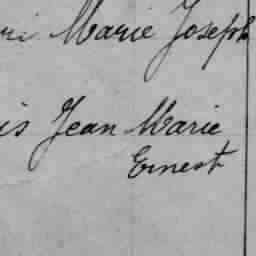 ri Marie Joseph
is Jean Marie
Ernest